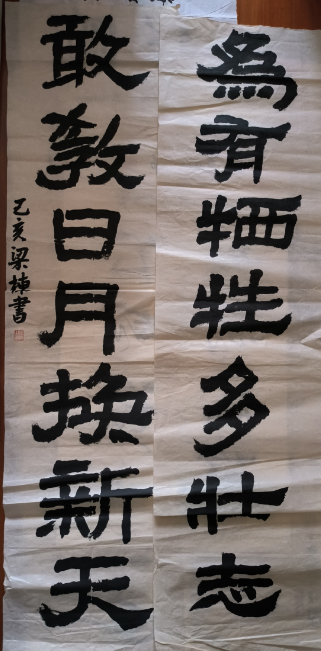 為有犠牲多壮志
敢教日月換新天
乙亥梁棟書